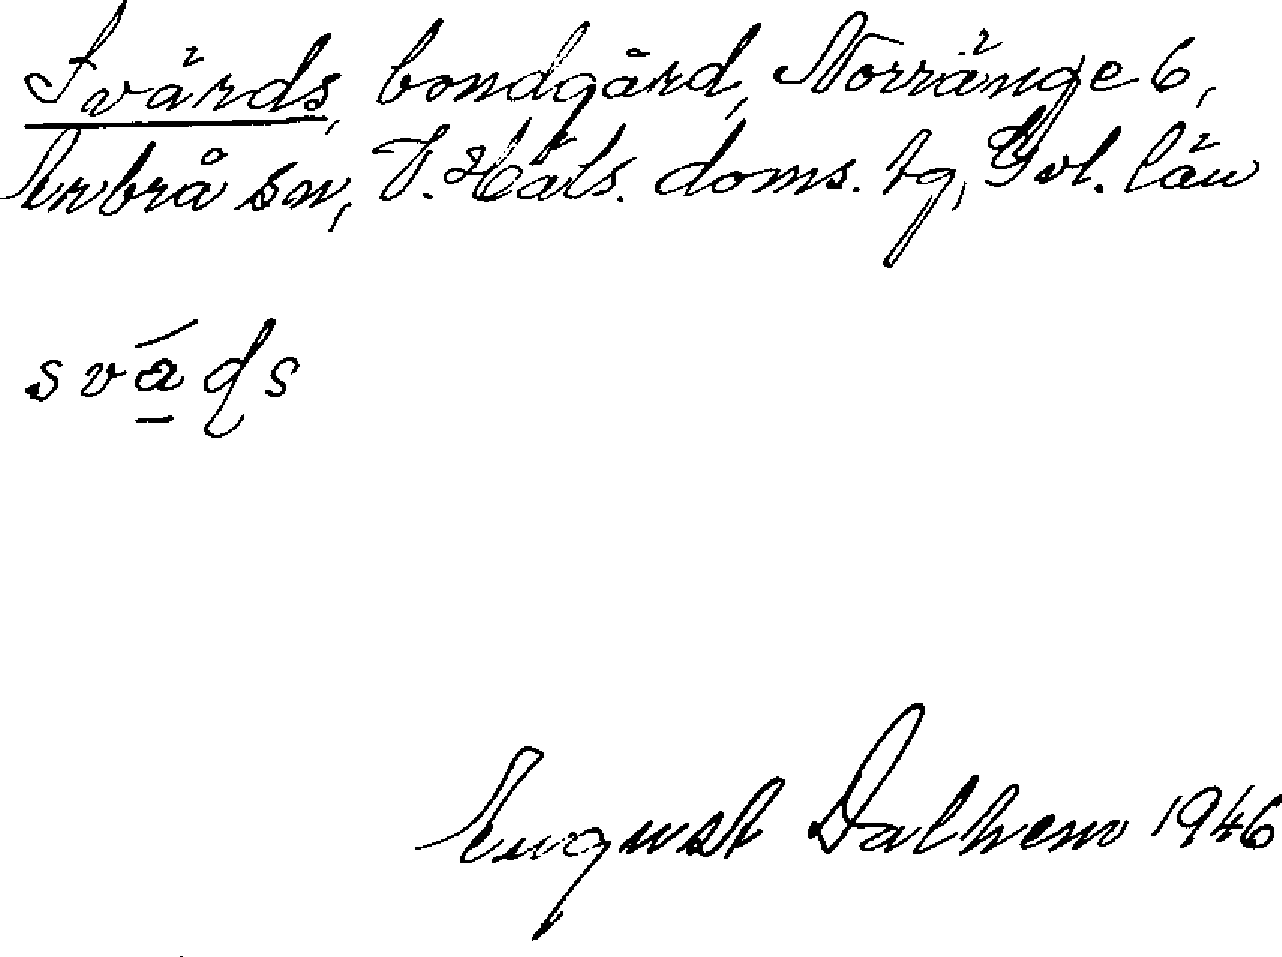 Svärds, bondgård, Norränge 6,
Arbrå sn, V. Häls. doms. tg, Gvl. län
svá̱ɖs
August Dalhem 1946